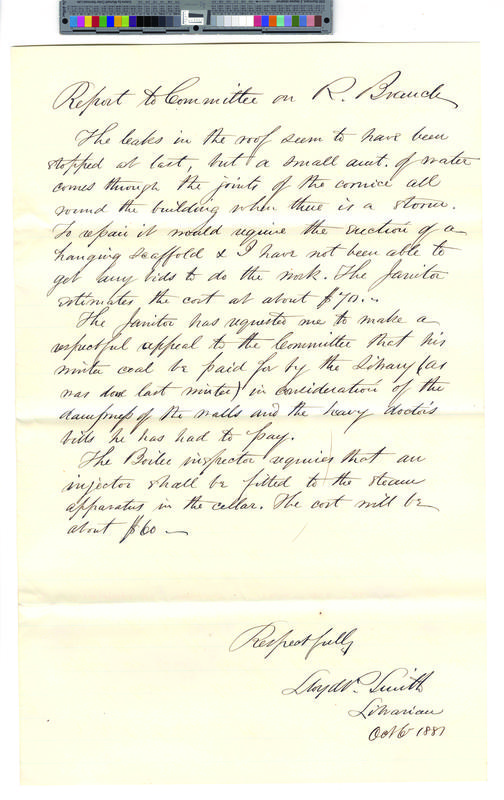 Report to Committee on R. Branch
The leaks in the roof seem to have been
stopped at last, but a small amt. of water
comes through the joints of the cornice all
round the building when there is a storm.
To repair it would require the erection of a
hanging scaffold & I have not been able to
get any bids to do the work. The Janitor
estimates the cost at about $70.
The Janitor has requested me to make a
respectful appeal to the Committee that his
winter coal be paid for by the Library (as
was done last winter) in consideration of the
dampness of the walls and the heavy doctor's
bills he has had to pay.
The Boiler inspector requires that an
injector shall be fitted to the steam
apparatus in the cellar. The cost will be
about $60 —
Respectfully
Lloyd P. Smith
Librarian
Oct 6 1881